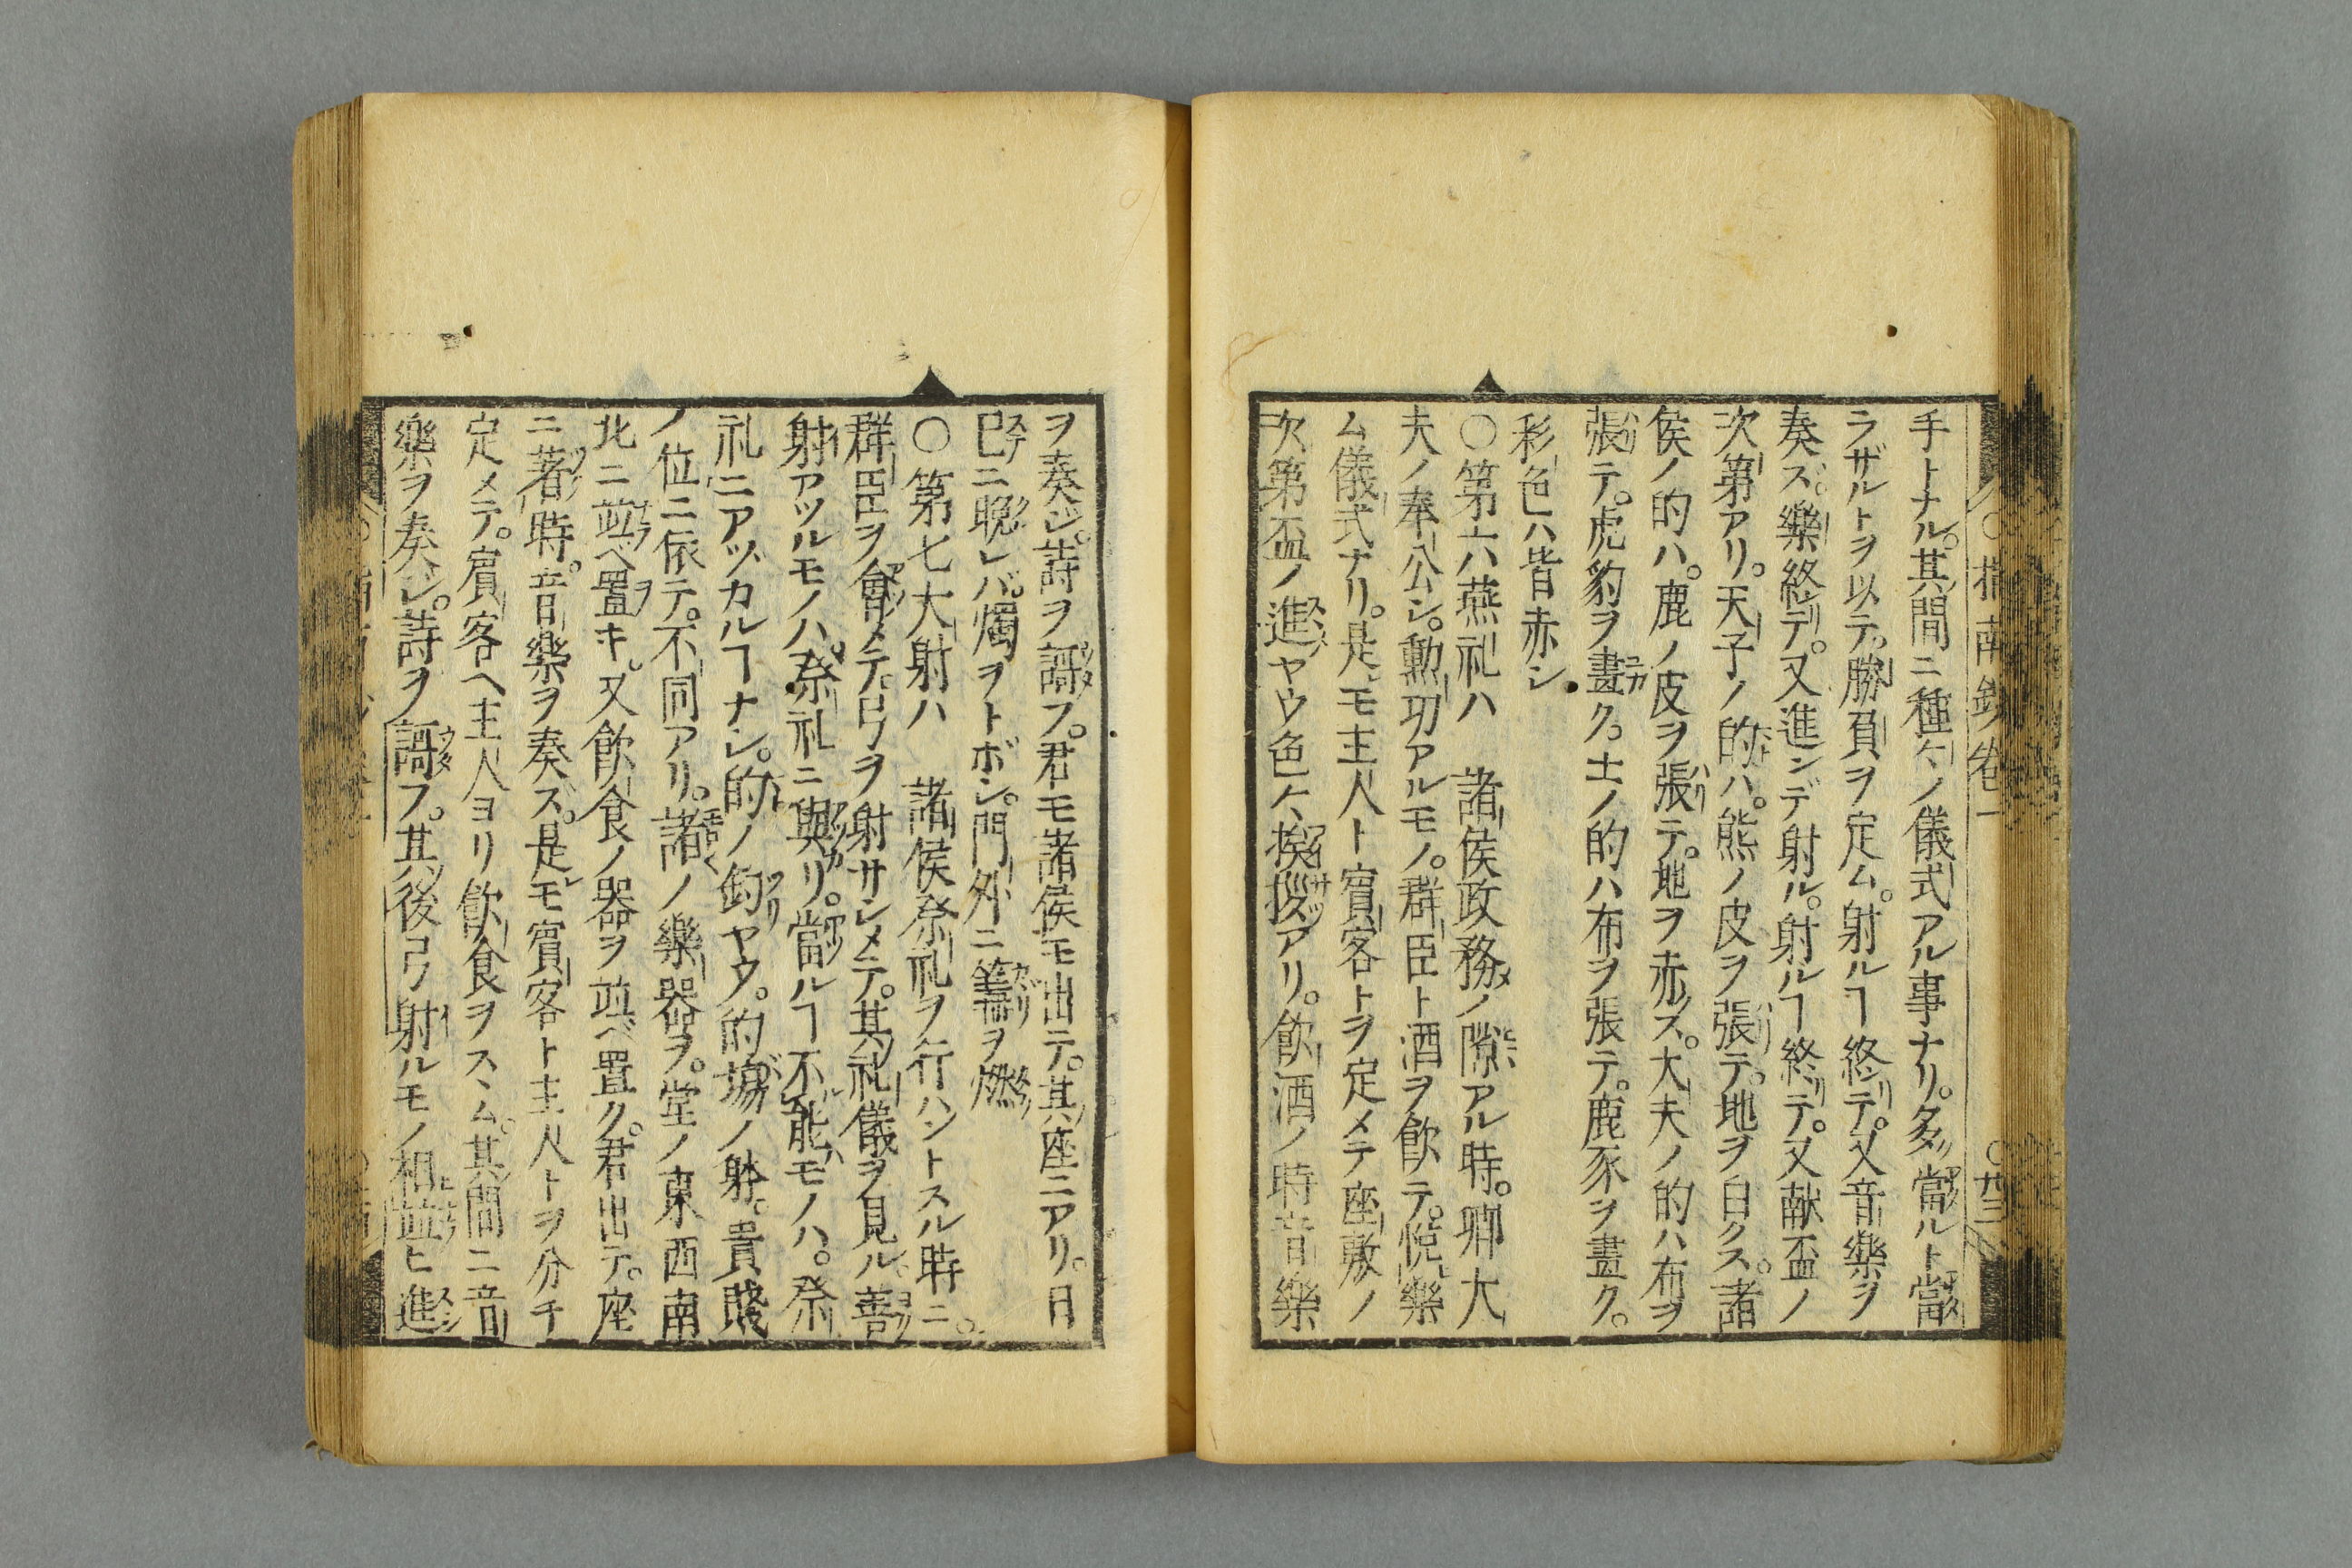 指南鈔卷一 ○廿三
手トナル。其間ニ種々ノ儀式アル事ナリ。多ク當ルト當
ラザルトヲ以テ。勝負ヲ定ム。射ルヿ終テ。又音樂ヲ
奏ズ。樂終テ。又進ンデ射ル。射ルヿ終テ。又献盃ノ
次第アリ。天子ノ的ハ。熊ノ皮ヲ張テ。地ヲ白クス。諸
侯ノ的ハ。鹿ノ皮ヲ張テ。地ヲ赤クス。大夫ノ的ハ布ヲ
張テ。虎豹ヲ畫ク。士ノ的ハ布ヲ張テ。鹿豕ヲ畫ク。
彩色ハ皆赤シ
○第六燕礼ハ 諸侯政務ノ隙アル時。卿大
夫ノ奉公シ。勲功アルモノ。群臣ト酒ヲ飲テ。悦樂
ム儀式ナリ。是モ主人ト賓客トヲ定メテ座敷ノ
次第盃ノ進ヤウ色々挨拶アリ。飲酒ノ時音樂
ヲ奏シ。詩ヲ謌フ。君モ諸侯モ出テ。其座ニアリ。日
已ニ晩レバ。燭ヲトボシ。門外ニ篝ヲ燃
○第七大射ハ 諸侯祭礼ヲ行ハントスル時ニ。
群臣ヲ會メテ弓ヲ射サシメテ。其礼儀ヲ見ル。善
射アツルモノハ。祭礼ニ與リ。當ルヿ不能モノハ。祭
礼ニアヅカルヿナシ。的ノ釣ヤウ。的塲ノ躰。貴賤
ノ位ニ依テ。不同アリ。諸ノ樂器ヲ。堂ノ東西南
北ニ並ベ置キ。又飲食ノ器ヲ並ベ置ク。君出テ。座
ニ著時。音樂ヲ奏ス。是モ賓客ト主人トヲ分チ
定メテ。賓客ヘ主人ヨリ飲食ヲスヽム。其間ニ音
樂ヲ奏シ。詩ヲ謌フ。其後弓射ルモノ相並ヒ進